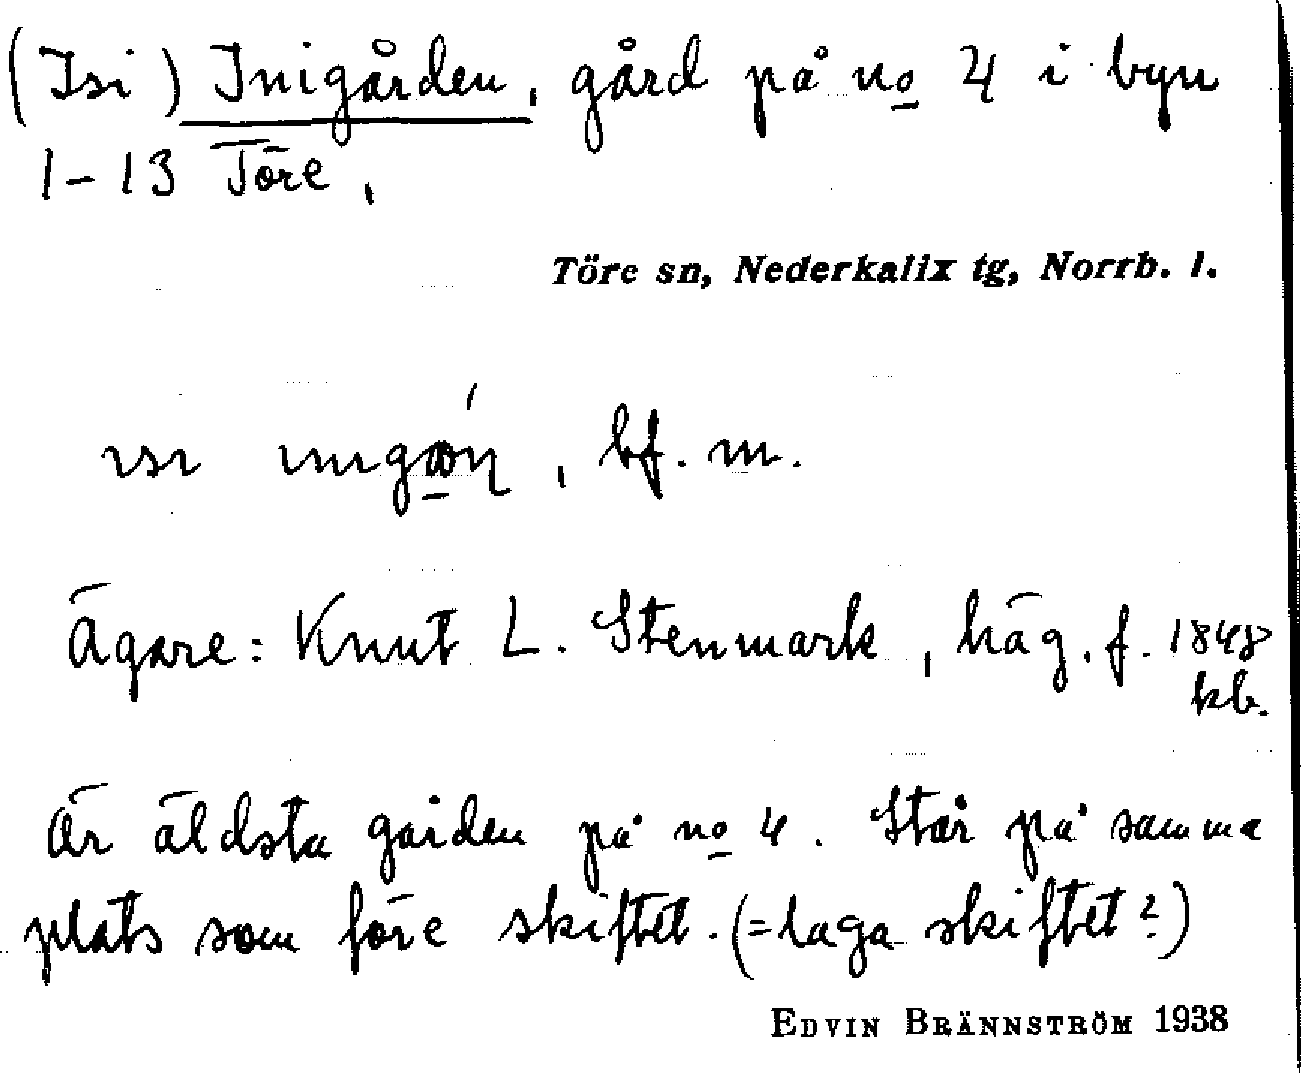 (Isi) Inigården, gård på no 4 i byn
1-13 Töre,
Töre sn, Nederkalix tg, Norrb. l.
ısı ınıgɷ́ṇ, bf. m.
Ägare: Knut L. Stenmark, häg. f. 1848
kb.
Är äldsta gården på no 4. Står på samma
plats som före skiftet. (= laga skiftet?)
EDVIN BRÄNNSTRÖM 1938